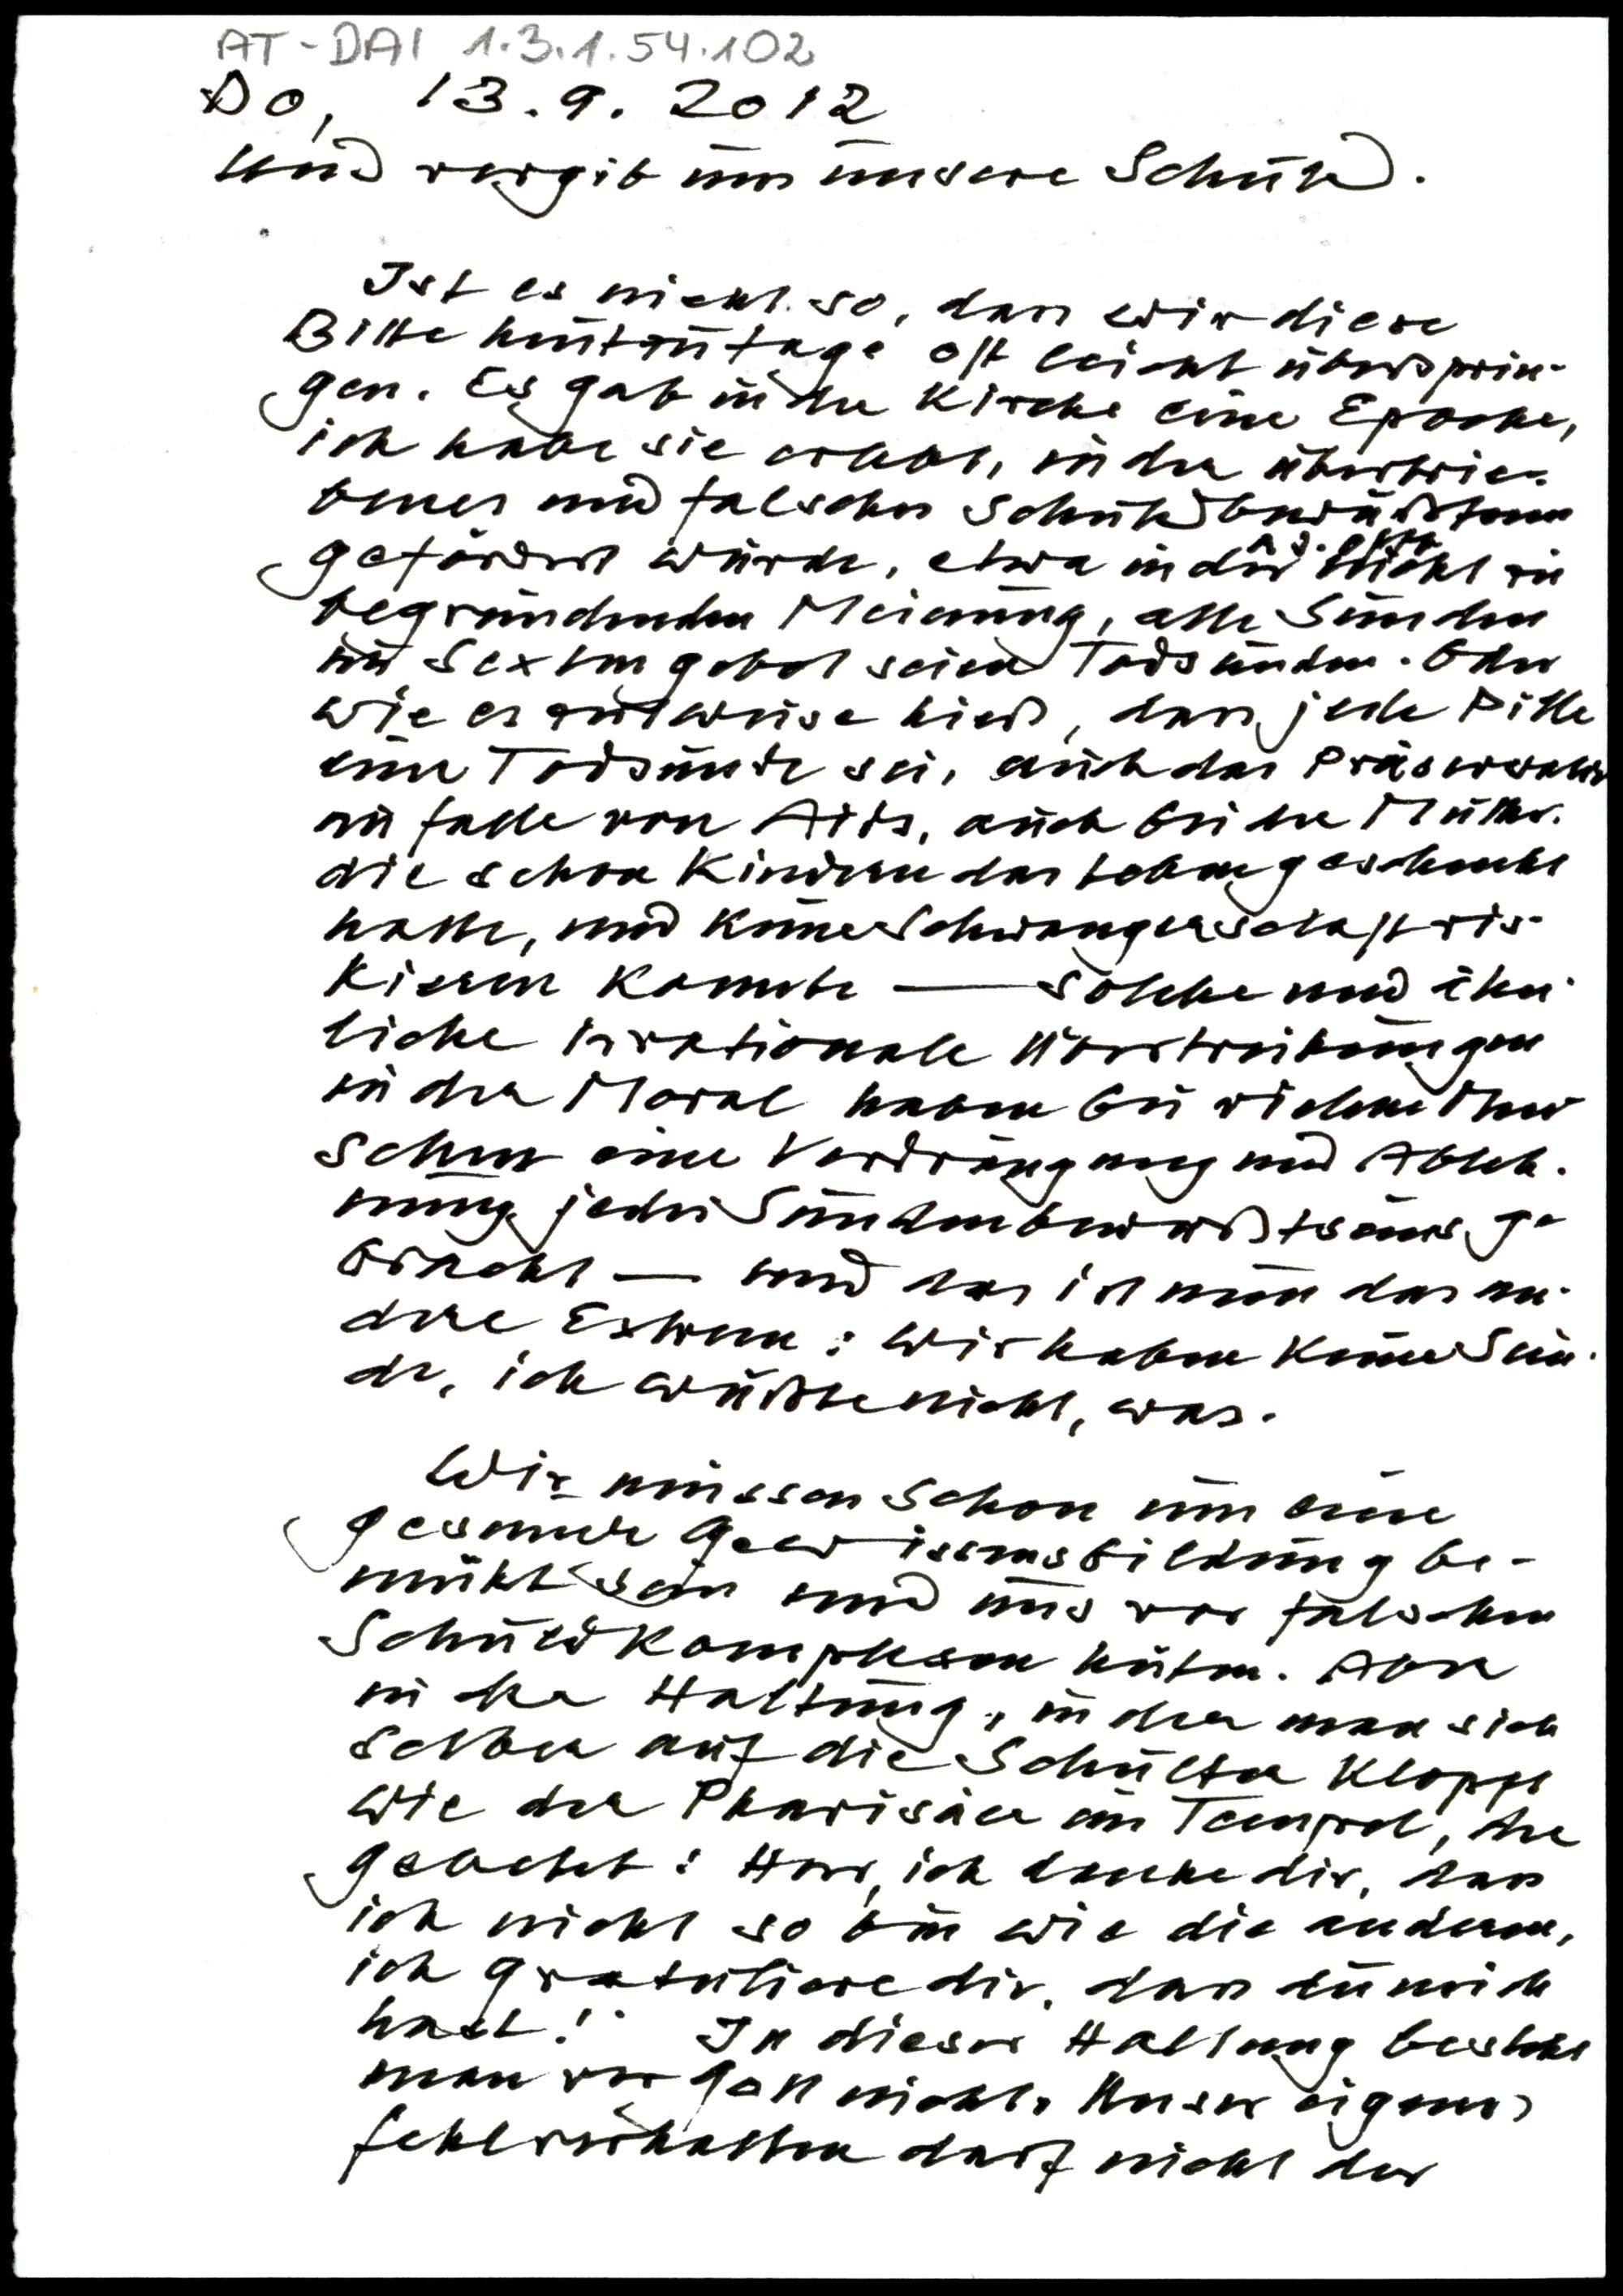 AT-DAI 1.3.1.54.102
Do, 13.9.2012
Und vergib uns unsere Schuld.
Ist es nicht so, dass wir diese
Bitte heutzutage oft leicht übersprin-
gen. Es gab in der Kirche eine Epoche,
ich habe sie erlebt, in der übertrie-
benes und falsches Schuldbewußtsein
gefördert wurde, etwa in der nicht zu
begründenden Meinung, alle Sünden
im Sexten gebot seien Todsünden. Oder
wie es zeitweise hieß, dass jede Pille
eine Todsünde sei, auch das Präservativ
im falle von Aids, auch bei der Mutter.
die schon Kindern das Leben geschenkt
hatte, und keine Schwangerschaft ris-
kieren konnte — solche und ähn-
liche irrationale Übertreibungen
in der Moral haben bei vielen Men
schen eine Verdrängung und Ableh-
nung jedes Sündenbewußtseins ge
bracht — und das ist nun das an-
dere Extrem: Wir haben keine Sün-
de, ich wüßte nicht, was.
Wir müssen schon um eine
gesunde Gewissensbildung be-
müht sein und uns vor falschen
Schuldkomplexen hüten. Aber
in der Haltung, in der man sich
selber auf die Schulter klopft
wie der Pharisäer im Tempel, der
gebetet: Herr, ich danke dir, dass
ich nicht so bin wie die anderen,
ich gratuliere dir, dass du mich
hast! In dieser Haltung besteht
man vor Gott nicht. Unser eigenes
fehlverhalten darf nicht der